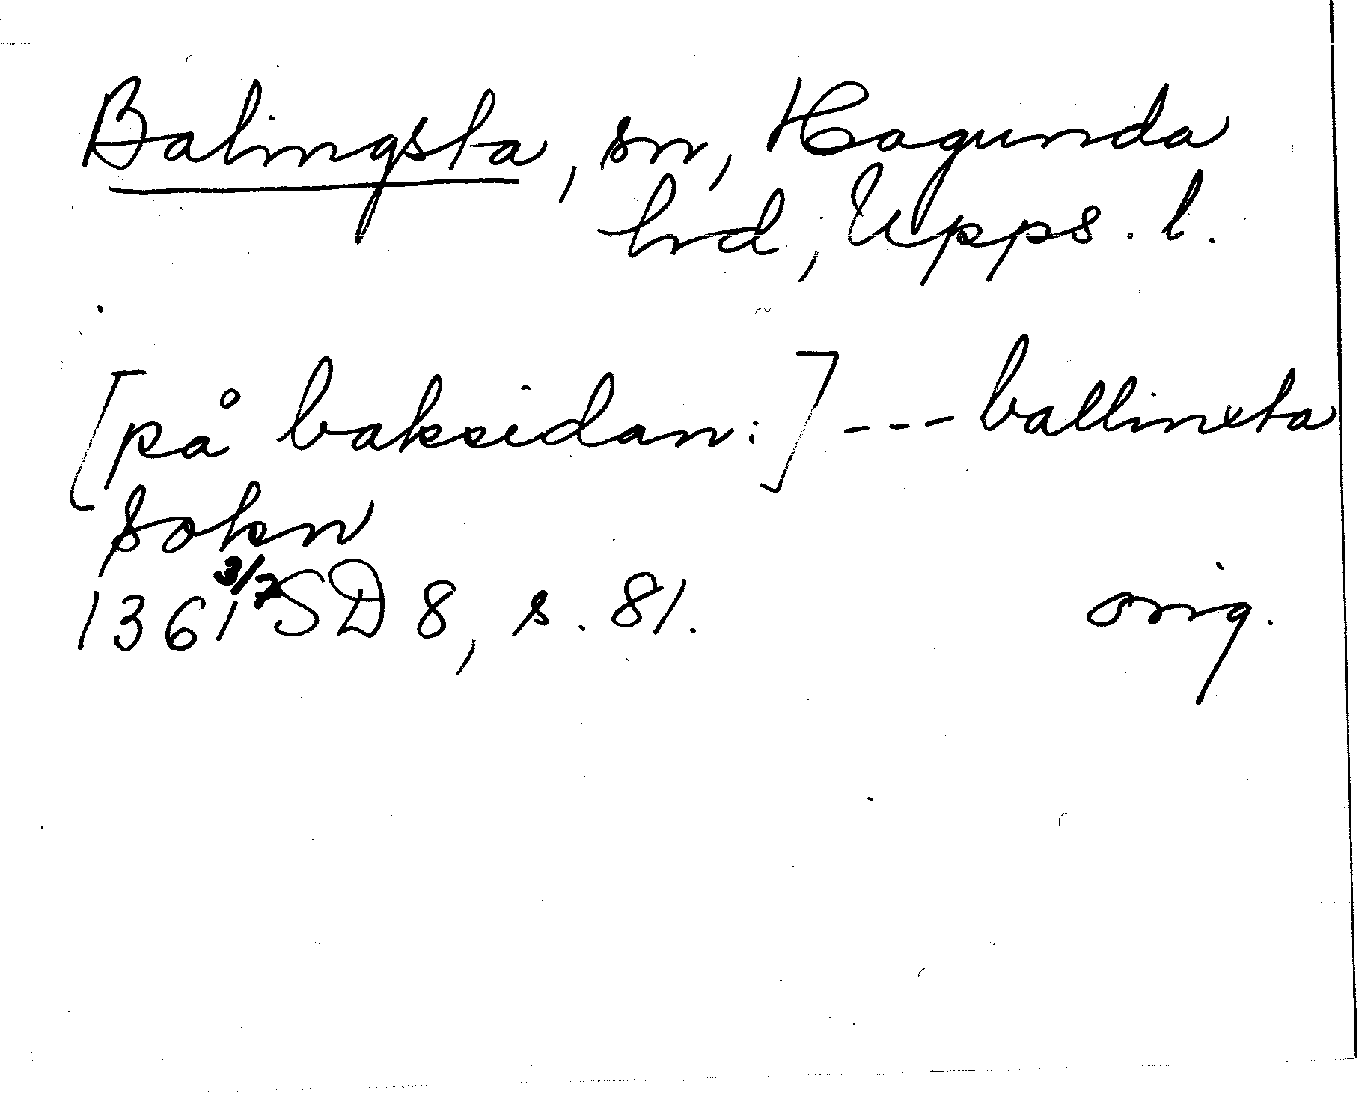 Balingsta, sn, Hagunda
hrd, Upps. l.
[på baksidan:] --- ballinxta
sokn
1361 3/7 SD 8, s. 81. orig.